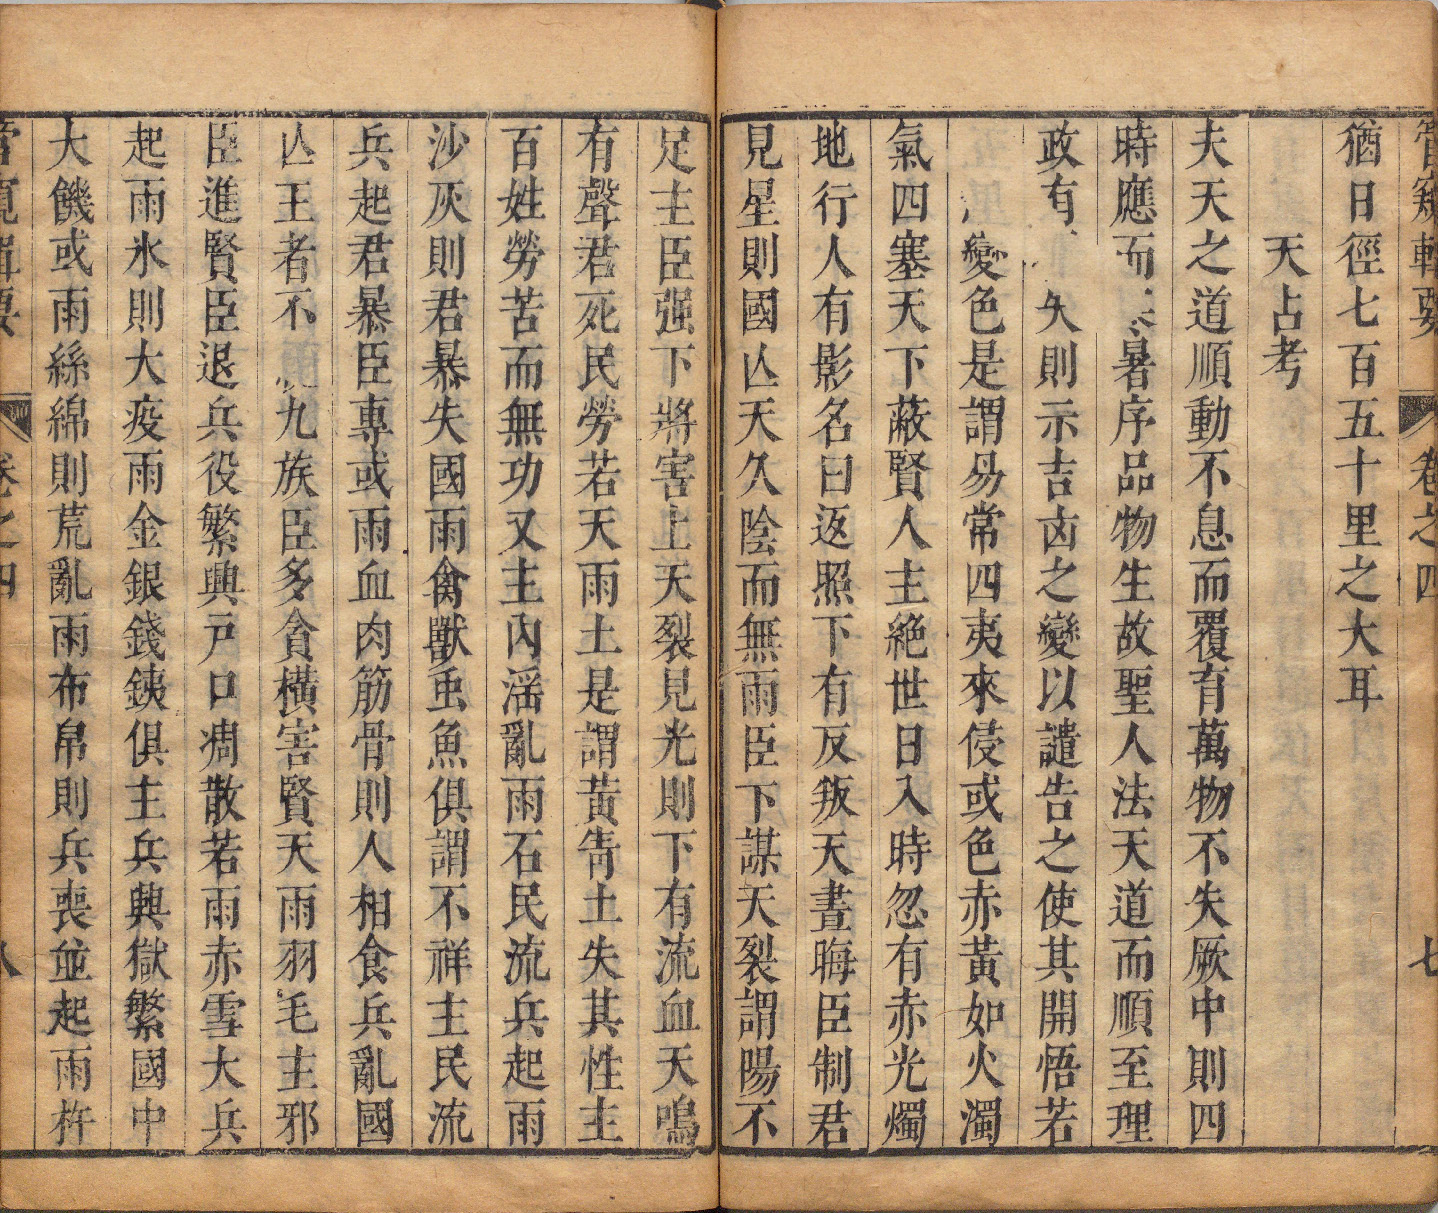 管窺輯要 卷之四 七
猶日徑七百五十里之大耳
天占考
夫天之道順動不息而覆育萬物不失厥中則四
時應而 暑序品物生故聖人法天道而順至理
政有 失則示吉凶之變以譴告之使其開悟若
變色是謂易常四夷來侵或色赤黃如火濁
氣四塞天下蔽賢人主絶世日入時忽有赤光燭
地行人有影名曰返照下有反叛天晝晦臣制君
見星則國亾天久陰而無雨臣下謀天裂謂陽不
足主臣强下將害上天裂見光則下有流血天鳴
有聲君死民勞若天雨土是謂黃眚土失其性主
百姓勞苦而無功又主內滛亂雨石民流兵起雨
沙灰則君暴失國雨禽獸虫魚俱謂不祥主民流
兵起君暴臣專或雨血肉筋骨則人相食兵亂國
亾王者不 九族臣多貪橫害賢天雨羽毛主邪
臣進賢臣退兵役繁興戸口凋散若雨赤雪大兵
起雨氷則大疫雨金銀錢鉄俱主兵興獄繁國中
大饑或雨絲綿則荒亂雨布帛則兵喪並起雨杵
管窺輯要 卷之四 八